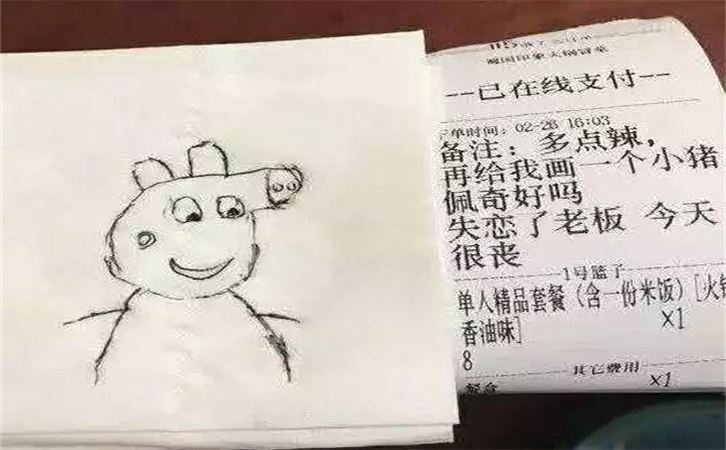 --已在线支付--
单时间: 02-26 16:03
备注: 多点辣,
再给我画一个小猪
佩奇好吗
失恋了老板 今天
很丧
1号篮子
单人精品套餐（含一份米饭）[火锅
香油味]
x1
8
其它费用
餐盒
x1